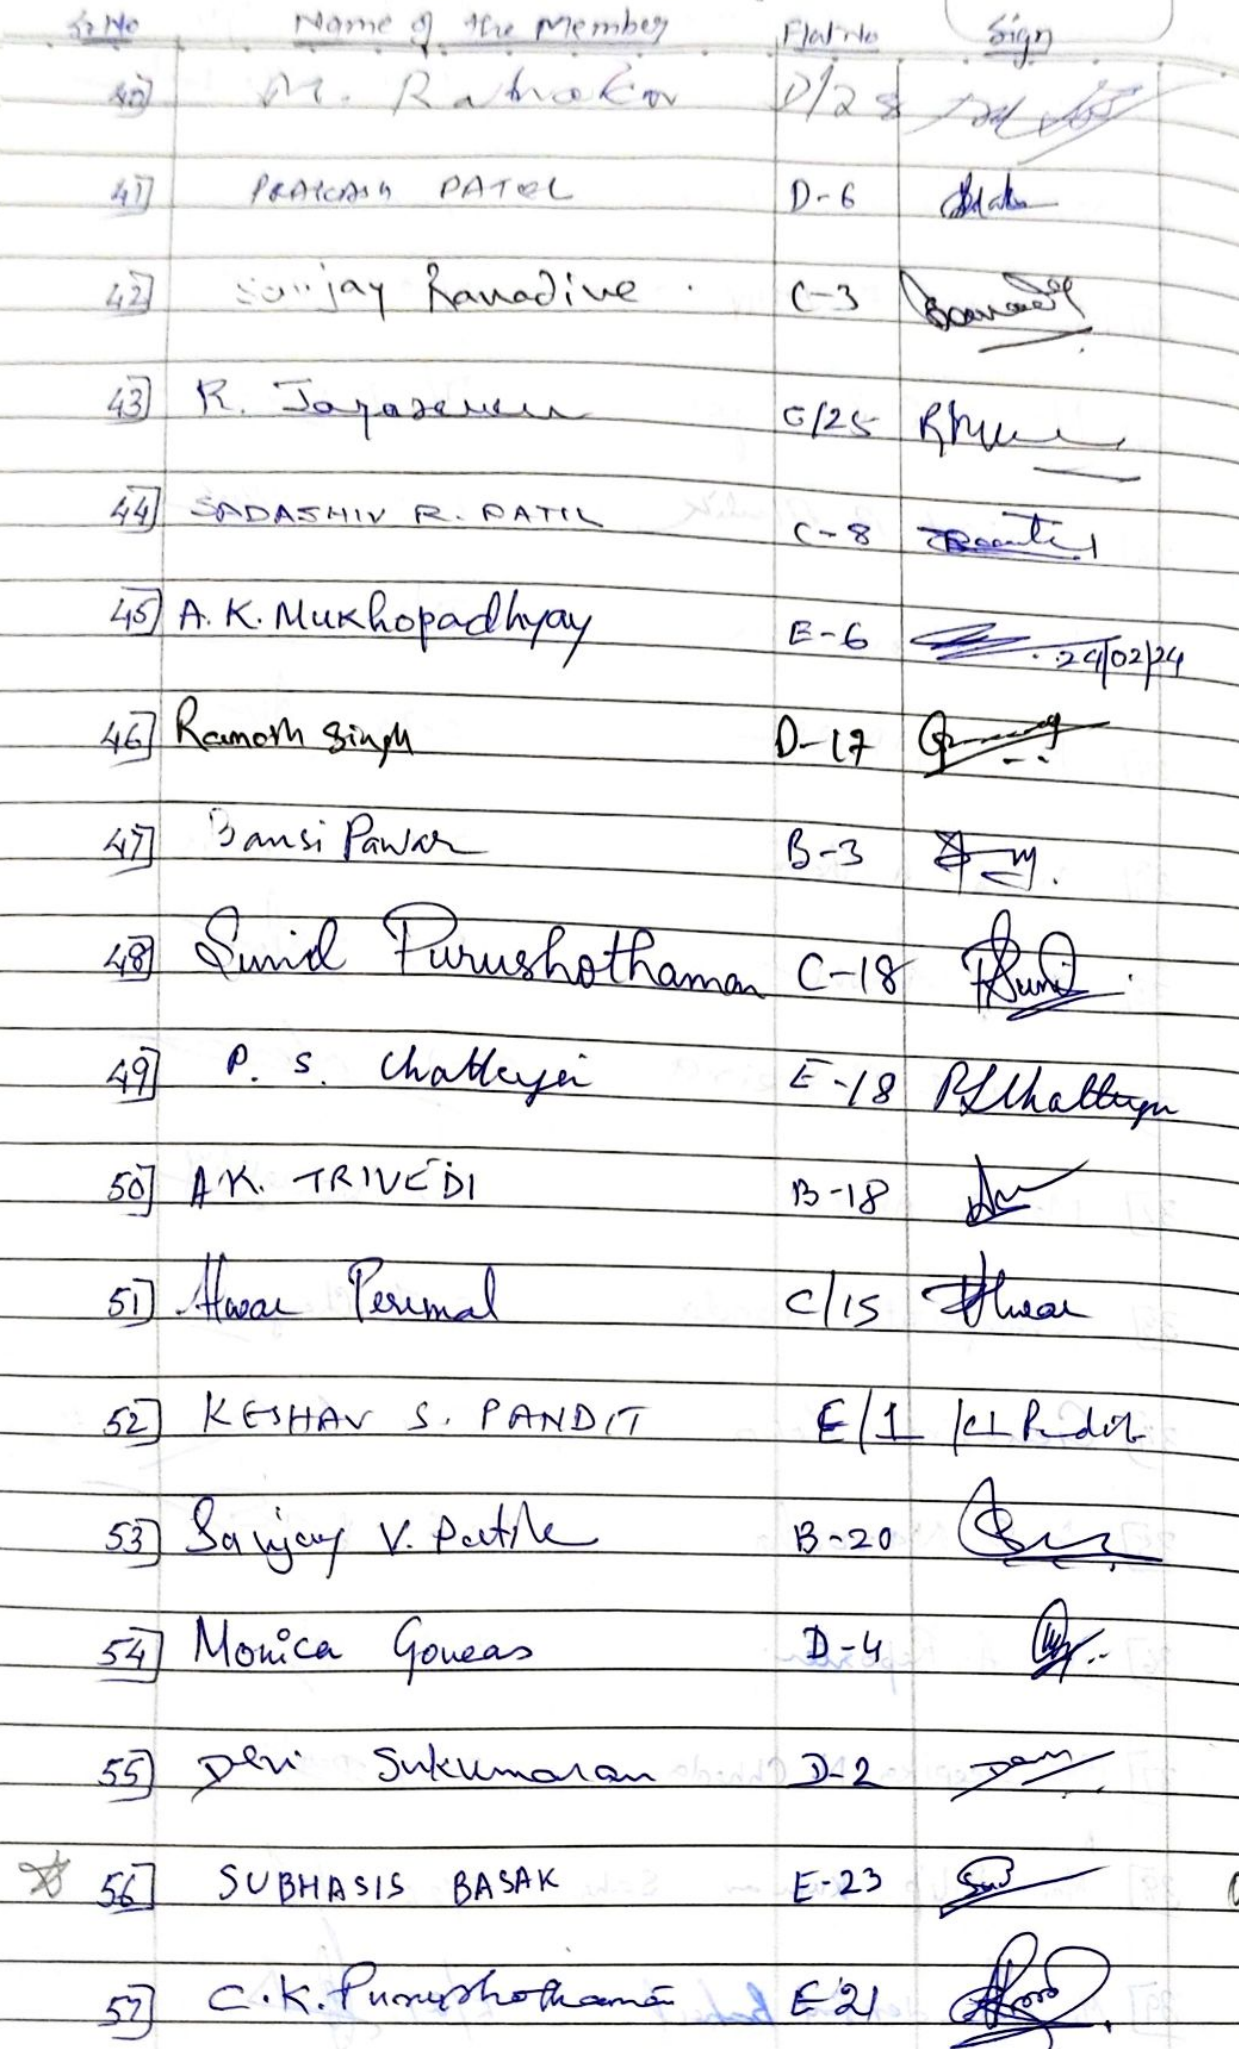 Sr No Name of the Member Flat No Sign
40] M. Ratnakar D/28
41] PRAKASH PATEL D-6
42] Sanjay Ranadive C-3
43] R. /25
44] SADASHIV R. PATIL C-8
45] A. K. Mukhopadhyay E-6 24/02/24
46] Ramesh Singh D-17
47] Bansi Pawar B-3
48] Sunil Purushothaman C-18 Sunil
49] P. S. Chatterjee E-18 PSChatterjee
50] A.K. TRIVEDI B-18
51] Perumal C/15
52] KESHAV S. PANDIT E/1
53] Sanjay V. Patil B-20
54] Monica Goveas D-4
55] Devi Sukumaran D-2
56] SUBHASIS BASAK E-23
57] C.K. Purushothaman E-21